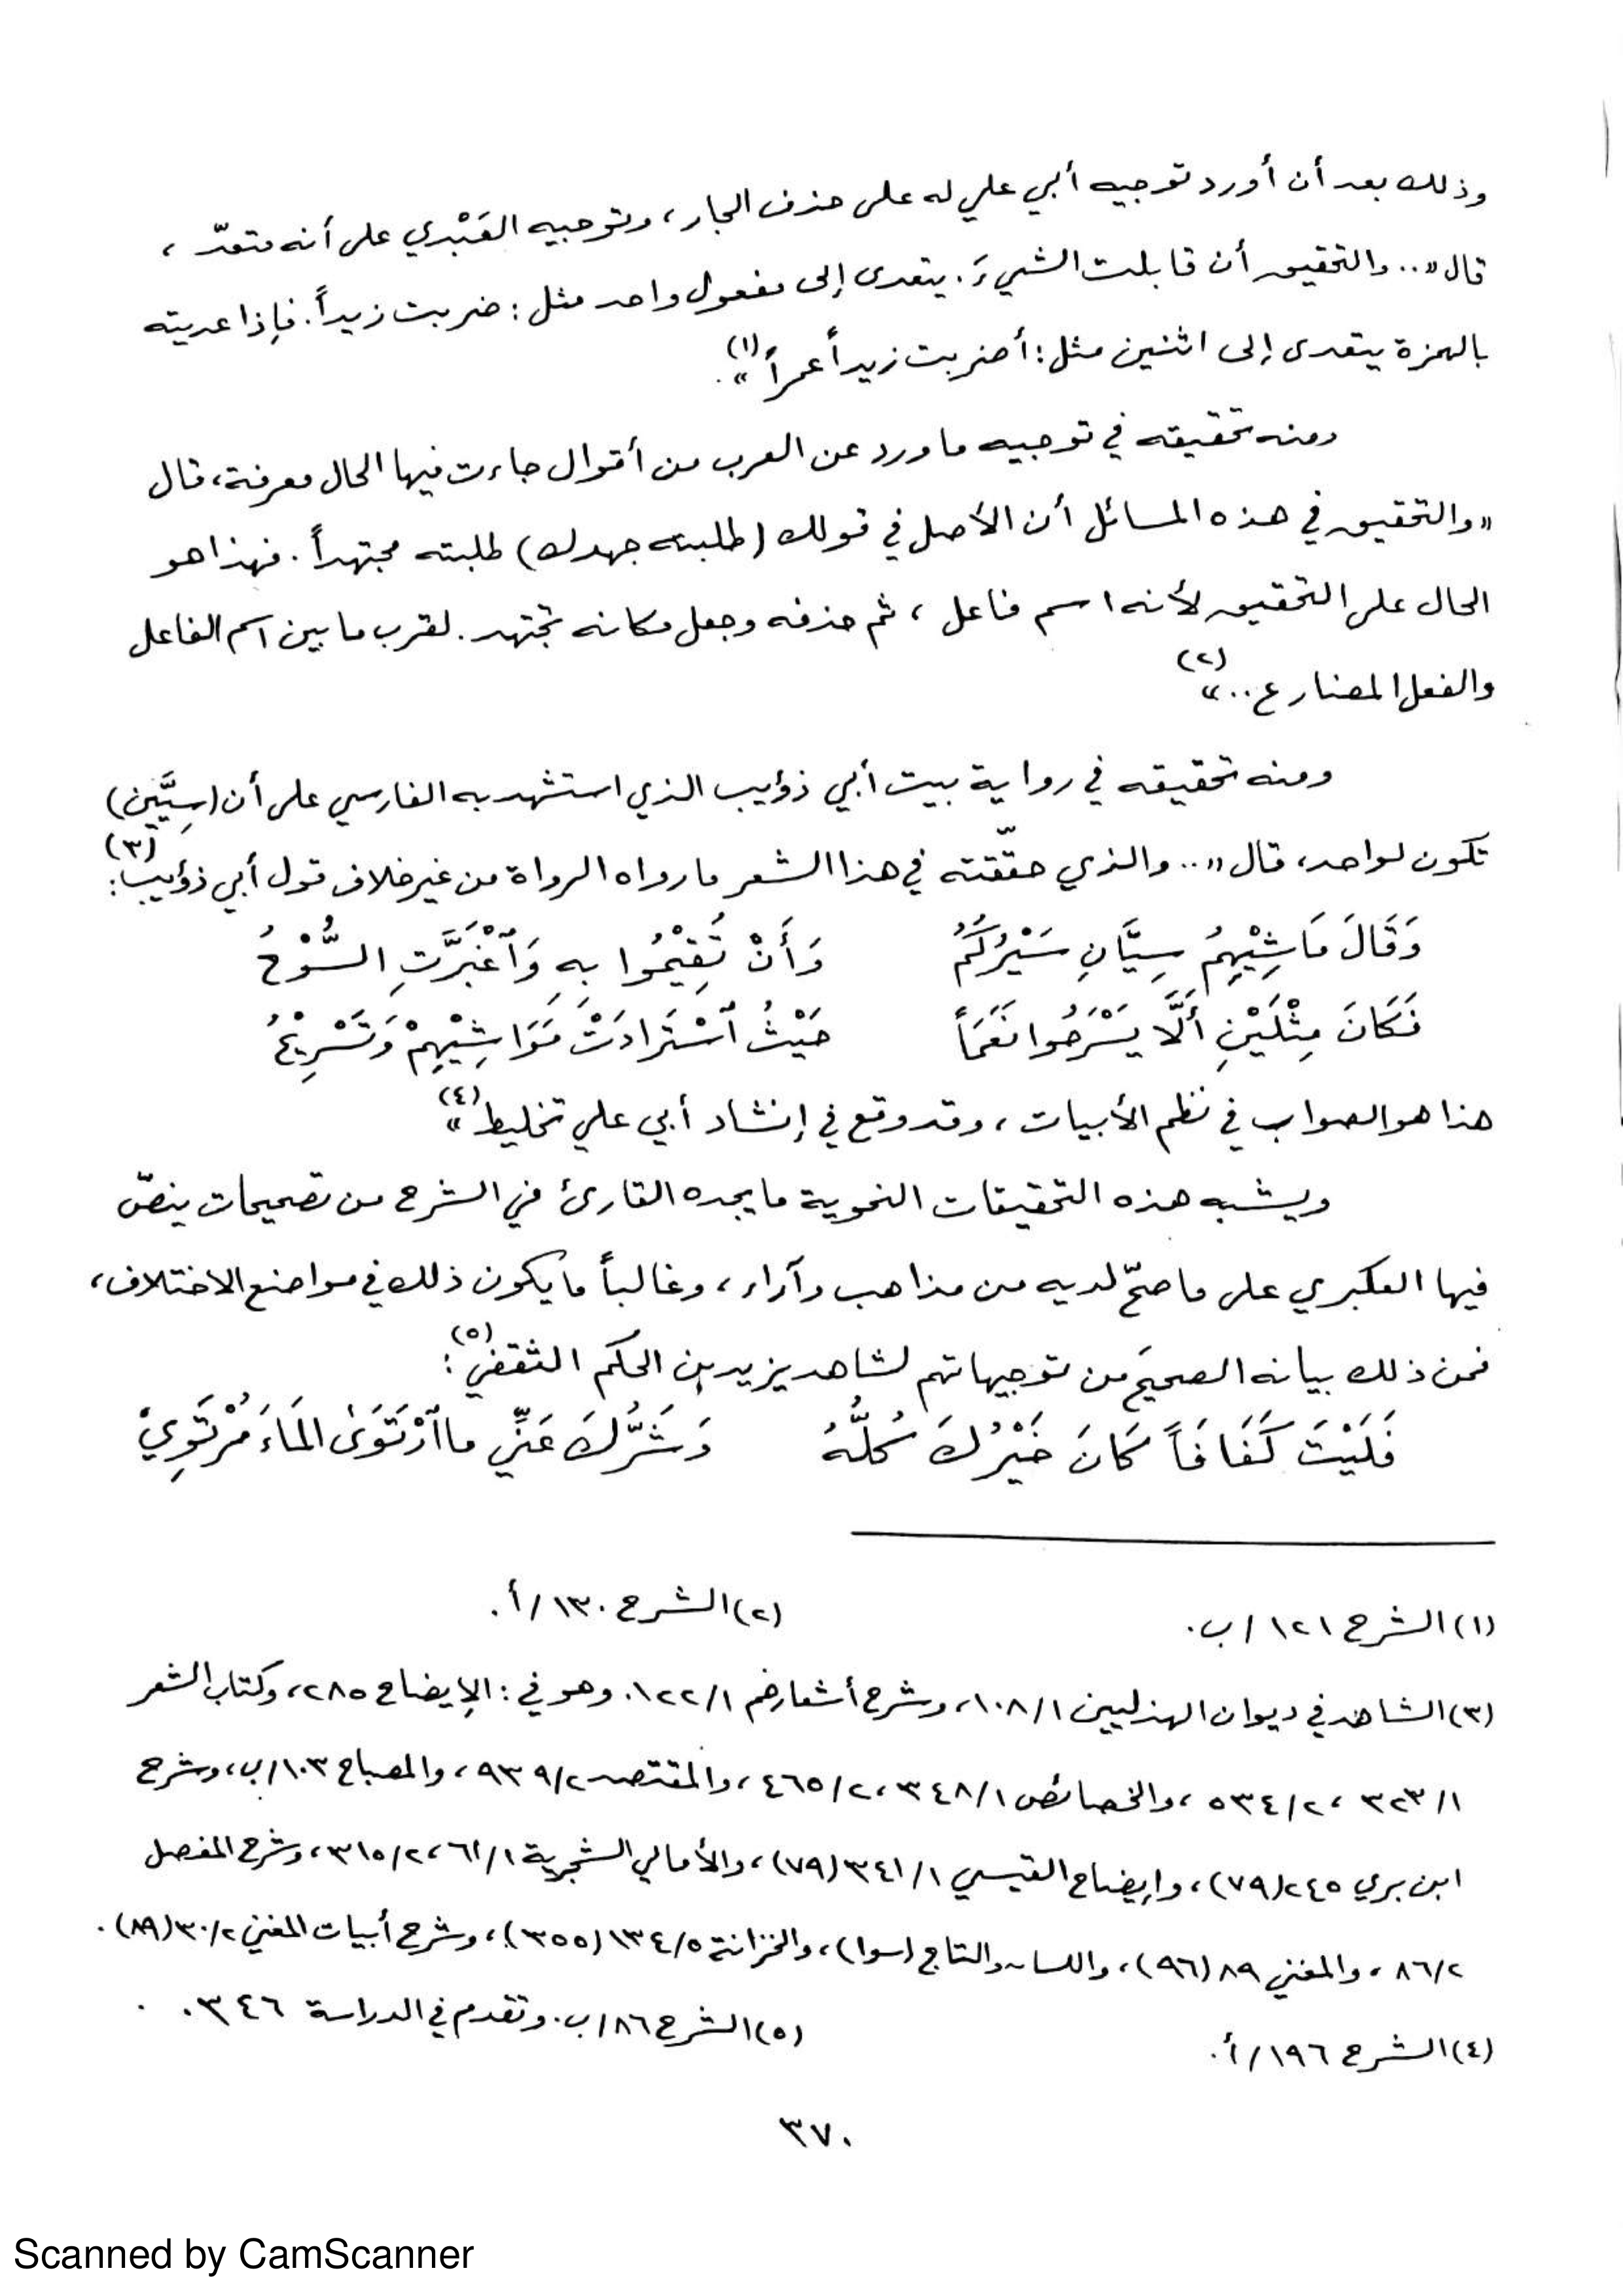 وذلك بعد أن أورد توجيه أبي علي له على حذف الجار، وتوجيه العَبْدي على أنه متعدّ،
قال «.. والتحقيق أن قابلت الشيءَ. يتعدى إلى مفعول واحد مثل: ضربت زيداً. فإذا عديته
بالهمزة يتعدى إلى اثنين مثل: أضربت زيداً عمراً»(١).
ومنه تحقيقه في توجيه ما ورد عن العرب من أقوال جاءت فيها الحال معرفة، قال
«والتحقيق في هذه المسائل أن الأصل في قولك (طلبته جهدك) طلبته مجتهداً. فهذا هو
الحال على التحقيق لأنه اسم فاعل، ثم حذفه وجعل مكانه تجتهد. لقرب ما بين اسم الفاعل
والفعل المضارع..»(٢)
ومنه تحقيقه في رواية بيت أبي ذؤيب الذي استشهد به الفارسي على أن (سِيَّين)
تكون لواحد، قال «.. والذي حقّقته في هذا الشعر ما رواه الرواة من غير خلاف قول أبي ذؤيب(٣):
وَقَالَ مَاشِيْهِمُ سِيَّانِ سَيْرُكُمُ وَأَنْ تُقِيْمُوا بِهِ وَٱغْبَرَّتِ السُّوْحُ
فَكَانَ مِثْلَيْنِ أَلَّا يَسْرَحُوا نَعَمَاً حَيْثُ ٱسْتَرادَتْ مَوَاشِيْهِمْ وَتَسْرِيْحُ
هذا هو الصواب في نظم الأبيات، وقد وقع في إنشاد أبي علي تخليط»(٤)
ويشبه هذه التحقيقات النحوية ما يجده القارئ في الشرح من تصحيحات ينصّ
فيها العكبري على ما صحّ لديه من مذاهب وآراء، وغالباً ما يكون ذلك في مواضع الاختلاف،
فمن ذلك بيانه الصحيحَ من توجيهاتهم لشاهد يزيد بن الحكم الثقفي(٥):
فَلَيْتَ كَفَافَاً كَانَ خَيْرُكَ كُلُّهُ وَشَرُّكَ عَنِّي ما ٱرْتَوَىٰ المَاءَ مُرْتَوِيْ
(١) الشرح ١٢١/ب.
(٢) الشرح ١٣٠/أ.
(٣) الشاهد في ديوان الهذليين ١٠٨/١، وشرح أشعارهم ١٢٢/١. وهو في: الإيضاح ٢٨٥، وكتاب الشعر
٣٢٣/١، ٥٣٤/٢، والخصائص ٣٤٨/١، ٤٦٥/٢، والمقتصد ٩٣٩/٢، والمصباح ١٠٣/ب، وشرح
ابن بري ٢٤٥(٧٩)، وإيضاح القيسي ٣٤١/١(٧٩)، والأمالي الشجرية ٦١/١، ٣١٥/٢، وشرح المفصل
٨٦/٢، والمغني ٨٩(٩٦)، واللسان والتاج (سوا)، والخزانة ١٣٤/٥(٣٥٥)، وشرح أبيات المغني ٣٠/٢(٨٩).
(٤) الشرح ١٩٦/أ.
(٥) الشرح ٨٦/ب. وتقدم في الدراسة ٣٤٦.
٣٧٠
Scanned by CamScanner